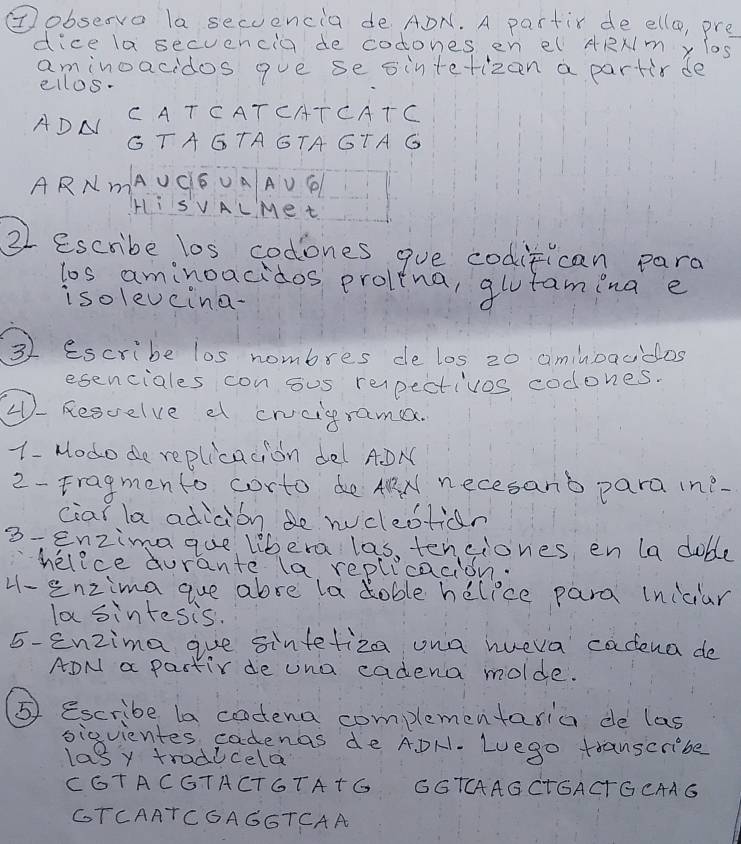 1) observa la secuencia de ADN. A partir de ella, pre
dice la secuencia de codones en el ARNm y los
aminoacidos que se sintetizan a partir de
ellos.
ADN CATCATCATCATC
GTAGTAGTAGTAG
ARNm AUCGUAAUG
HisVALMet
2) Escribe los codones que codifican para
los aminoacidos prolina, glutamina e
isoleucina-
3) Escribe los nombres de los 20 aminoacidos
esenciales con sus respectivos codones.
4)- Resuelve el crucigrama.
1- Modo de replicación del ADN
2- Fragmento corto de ARN necesario para ini-
ciar la adición de nucleótidn
3- Enzima que libera las tenciones en la doble
hélice durante la replicación.
4- Enzima que abre la doble hélice para iniciar
la sintesis.
5- Enzima que sintetiza una nueva cadena de
ADN a partir de una cadena molde.
5) Escribe la cadena complementaria de las
siguientes cadenas de ADN. Luego transcribe
las y traducela
CGTACGTACTGTATG GGTCAAGCTGACTGCAAG
GTCAATCGAGGTCAA